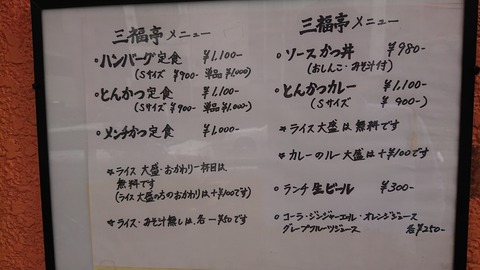 三福亭 メニュー
○ハンバーグ定食 ¥1,100-
(Sサイズ ¥900- 単品 ¥1,000)
○とんかつ定食 ¥1,100-
(Sサイズ ¥900- 単品 ¥1,000-)
○メンチかつ定食 ¥1,000-
☆ライス 大盛・おかわり一杯目は、
無料です
(ライス大盛の方のおかわりは+¥100です)
☆ライス・みそ汁無しは、各-¥50です
三福亭 メニュー
○ソースかつ丼 ¥980-
(おしんこ・みそ汁付)
○とんかつカレー ¥1,100-
(Sサイズ ¥900-)
☆ライス大盛は無料です
☆カレーのルー大盛は+¥100です
○ランチ生ビール ¥300-
○コーラ・ジンジャーエール・オレンジジュース
グレープフルーツジュース 各¥250-